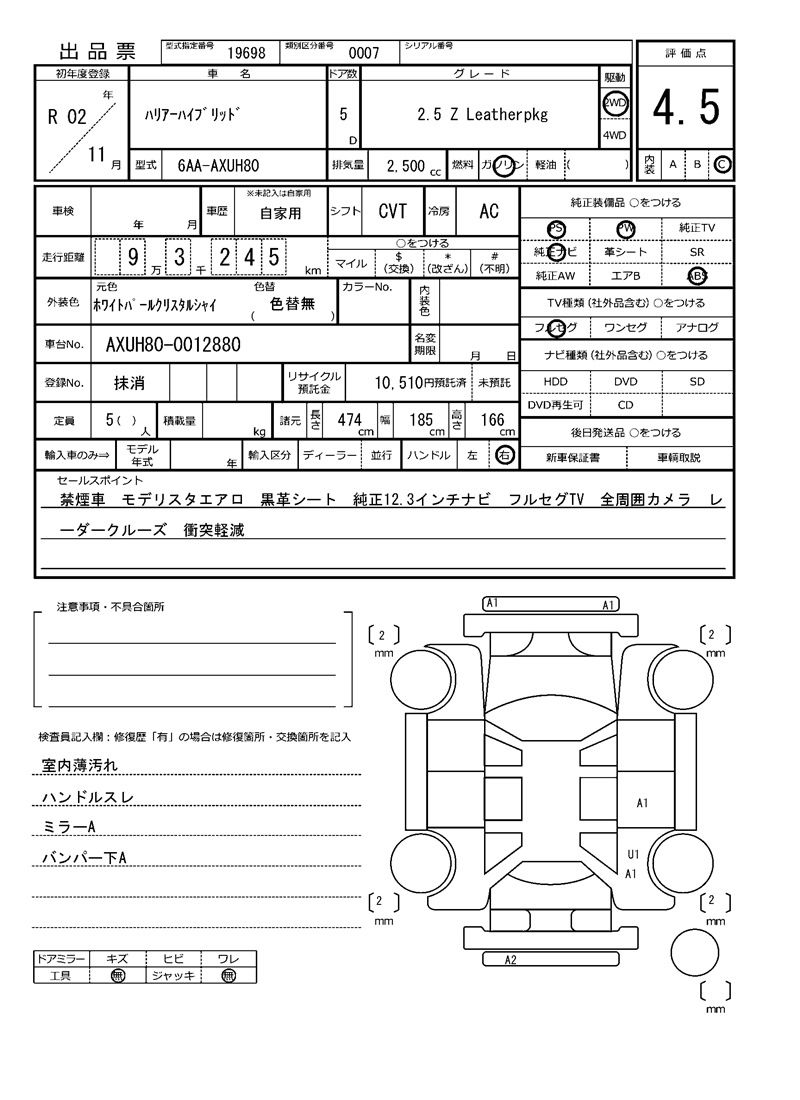 出品票 型式指定番号 19698 類別区分番号 0007 シリアル番号
評価点
4.5
内装 A B C
初年度登録 車名 ドア数 グレード 駆動
R 02 年 11 月 ﾊﾘｱｰﾊｲﾌﾞﾘｯﾄﾞ 5 D 2.5 Z Leatherpkg 2WD
4WD
型式 6AA-AXUH80 排気量 2,500 cc 燃料 ガソリン 軽油 ( )
車検 年 月 車歴 ※未記入は自家用 自家用 シフト CVT 冷房 AC
走行距離 9 万 3 千 2 4 5 km ○をつける
マイル $ (交換) * (改ざん) # (不明)
外装色 元色 ﾎﾜｲﾄﾊﾟｰﾙｸﾘｽﾀﾙｼｬｲ 色替 ( 色替無 ) カラーNo. 内装色
車台No. AXUH80-0012880 名変期限 月 日
登録No. 抹消 リサイクル預託金 10,510円預託済 未預託
定員 5( ) 人 積載量 kg 諸元 長さ 474 cm 幅 185 cm 高さ 166 cm
輸入車のみ⇒ モデル年式 年 輸入区分 ディーラー 並行 ハンドル 左 右
純正装備品 ○をつける
PS PW 純正TV
純正ナビ 革シート SR
純正AW エアB ABS
TV種類(社外品含む)○をつける
フルセグ ワンセグ アナログ
ナビ種類(社外品含む)○をつける
HDD DVD SD
DVD再生可 CD
後日発送品 ○をつける
新車保証書 車輌取説
セールスポイント
禁煙車 モデリスタエアロ 黒革シート 純正12.3インチナビ フルセグTV 全周囲カメラ レ
ーダークルーズ 衝突軽減
注意事項・不具合箇所
検査員記入欄:修復歴「有」の場合は修復箇所・交換箇所を記入
室内薄汚れ
ハンドルスレ
ミラーA
バンパー下A
ドアミラー キズ ヒビ ワレ
工具 無 ジャッキ 無
A1 A1
[2] mm [2] mm
A1
U1
A1
[2] mm [2] mm
A2
[ ] mm